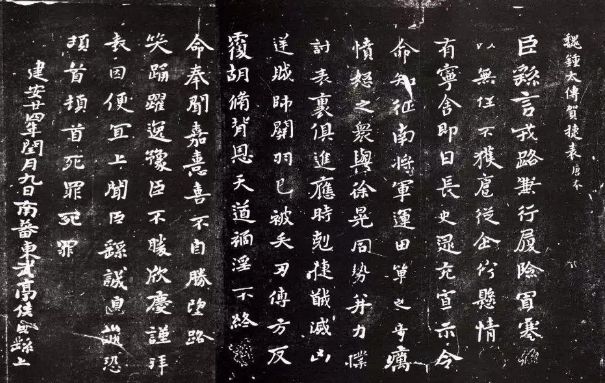 魏鍾太傅賀捷表唐本
臣繇言戎路兼行履險冒寒
以無任不獲扈從企佇懸情
有寧舍即日長史逯充宣示令
命知征南將軍運田單之奇厲
憤怒之衆與徐晃同勢并力撲
討表裏俱進應時剋捷馘滅凶
逆賊帥關羽已被矢刃傅方反
覆胡脩背恩天道禍淫不終
命奉聞嘉憙喜不自勝望路
笑踊躍逸豫臣不勝欣慶謹拜
表因便宜上聞臣繇誠惶誠恐
頓首頓首死罪死罪
建安廿四年閏月九日南蕃東武亭侯臣繇上